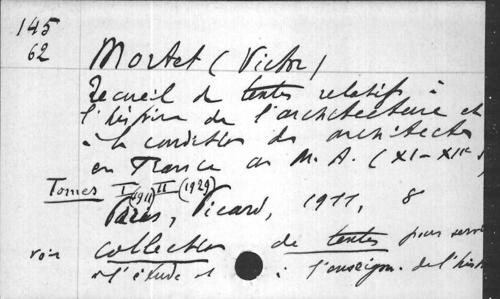 145
62
Mortet (Victor)
Recueil de textes relatifs à
l'histoire de l'architecture et
à la condition des architectes
en France au M. A. (XI-XIIe s
Tomes I (1911) II (1929)
Paris, Picard, 1911, 8
voir collection de textes pour servi
à l'étude et à l'enseign. de l'hist